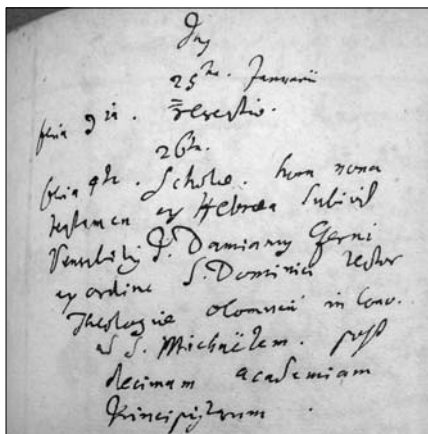 Die
25ta. Januarii
feria 3ia. Recreatio.
26ta.
feria 4ta. Scholae. hora nona
tentamen ex Hebraea subivit
Venerabilis P. Damianus Gerni
ex ordine S. Dominici lector
Theologiae Olomucii in Conv.
ad S. Michaëlem. post
decimam academiam
Principistarum.